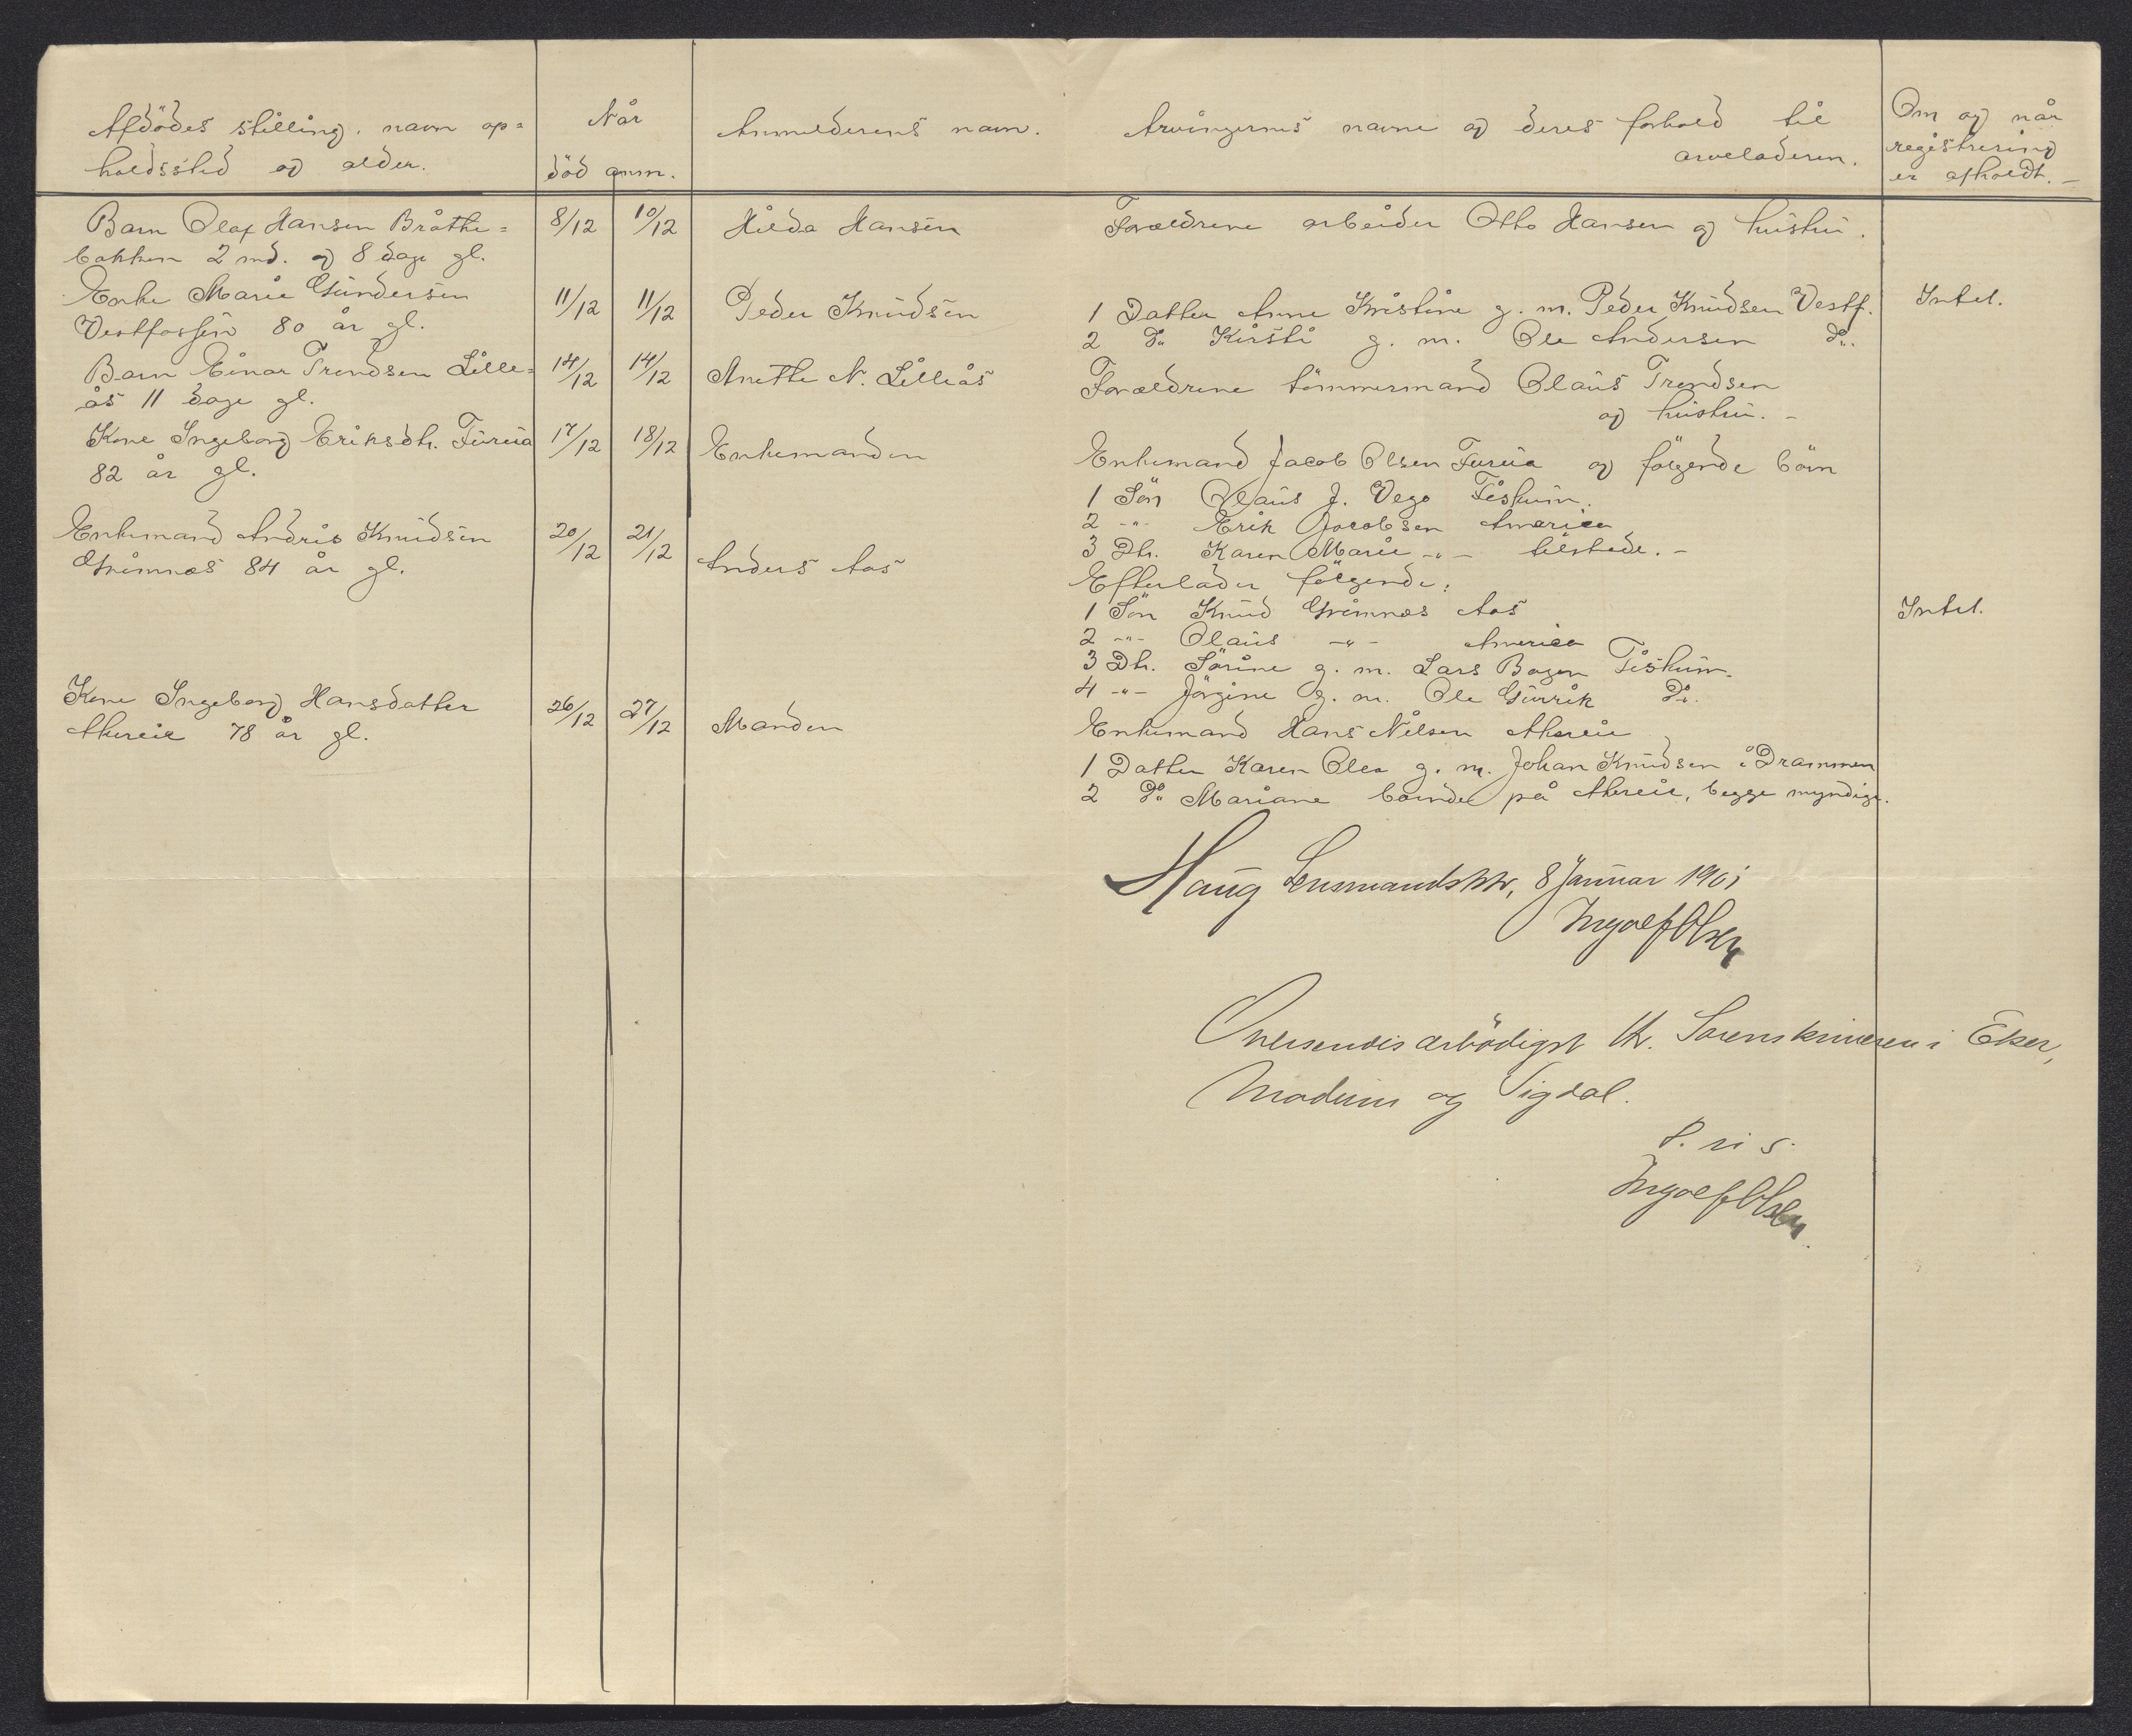 Afdödes stilling, navn op=
holdssted og alder.
Når
död anm.
Anmelderens navn.
Arvingernes navne og deres forhold til
arveladeren.
Om og når
registrering
er afholdt. -
Barn Olaf Hansen Bråthe=
bakken 2 md. og 8 dage gl.
8/12 10/12 Hilda Hansen
Forældrene arbeider Otto Hansen og hustru.
Enke Marie Gundersen
Vestfossen 80 år gl.
11/12 11/12 Peder Knudsen
1 Datter Anne Kristine g. m. Peder Knudsen Vestf.
2 Do Kirsti g. m. Ole Andersen Do.
Intet.
Barn Einar Trondsen Lille=
ås 11 dage gl.
14/12 14/12 Anethe N. Lilleås
Forældrene tömmermand Olaus Trondsen
og hustru. -
Kone Ingeborg Eriksdtr. Furua
82 år gl.
17/12 18/12 Enkemanden
Enkemand Jacob Olsen Furua og fölgende börn
1 Sön Olaus J. Vego Fiskum.
2 -"- Erik Jacobsen America
3 Dtr. Karen Marie -"- tilstede. -
Enkemand Andris Knudsen
Grimnæs 84 år gl.
20/12 21/12 Anders Aas
Efterlader fölgende:
1 Sön Knud Grimnæs Aas
2 -"- Olaus -"- America
3 Dtr. Sörine g. m. Lars Bagen Fiskum.
4 -"- Jörgine g. m. Ole Gurrik Do.
Intet.
Kone Ingeborg Hansdatter
Akereie 78 år gl.
26/12 27/12 Manden
Enkemand Hans Nilsen Akereie
1 Datter Karen Olea g. m. Johan Knudsen i Drammen
2 Do Mariane boende på Akereie, begge myndige.
Haug Lensmandsktr, 8 Januar 1901
Ingolf Olsen
Oversendes ærbödigst Hr. Sorenskriveren i Eker,
Modum og Sigdal.
Ingolf Olsen